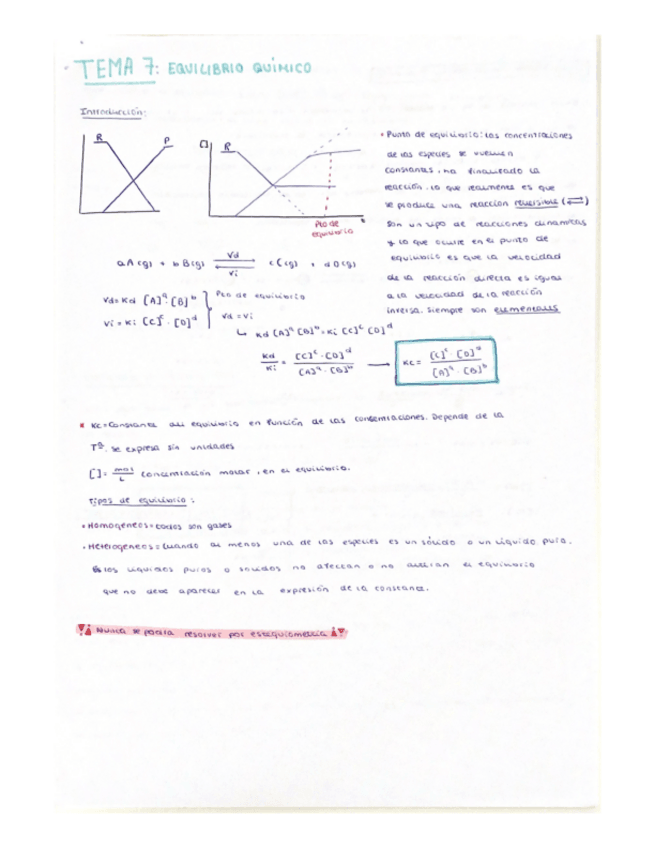 TEMA 7: EQUILIBRIO QUÍMICO
Introducción:
R P
[] R
Pto de
equilibrio
• Punto de equilibrio: las concentraciones
de las especies se vuelven
constantes, ha finalizado la
reacción. Lo que realmente es que
se produce una reacción reversible (⇄)
son un tipo de reacciones dinámicas
y lo que ocurre en el punto de
equilibrio es que la velocidad
de la reacción directa es igual
a la velocidad de la reacción
inversa. Siempre son elementales
aA(g) + bB(g) ⇄ cC(g) + dD(g)
Vd
Vi
Vd = Kd [A]ᵃ·[B]ᵇ
Vi = Ki [C]ᶜ·[D]ᵈ
Pto de equilibrio
Vd = Vi
↳ Kd [A]ᵃ[B]ᵇ = Ki [C]ᶜ[D]ᵈ
Kd/Ki = [C]ᶜ·[D]ᵈ/[A]ᵃ·[B]ᵇ → Kc = [C]ᶜ·[D]ᵈ/[A]ᵃ·[B]ᵇ
Kc = Constante del equilibrio en función de las concentraciones. Depende de la
Tª. Se expresa sin unidades
[] = mol/L concentración molar, en el equilibrio.
Tipos de equilibrio:
• Homogéneos = todos son gases
• Heterogéneos = Cuando al menos una de las especies es un sólido o un líquido puro.
los líquidos puros o sólidos no afectan o no alteran el equilibrio
que no debe aparecer en la expresión de la constante.
Nunca se podrá resolver por estequiometría